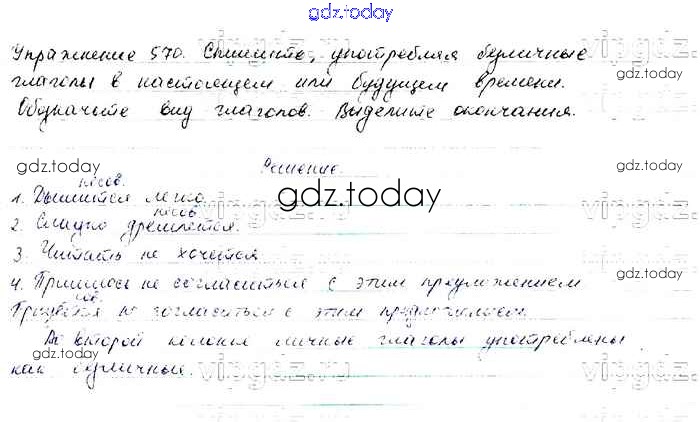 gdz.today
Упражнение 570. Спишите, употребляя безличные
глаголы в настоящем или будущем времени.
Обозначьте вид глаголов. Выделите окончания.
Решение.
несов.
1. Дышится легко.
несов.
2. Сладко дремлется.
3. Читать не хочется
4. Пришлось не согласиться с этим предложением
сов.
Придётся не согласиться с этим предложением.
Во второй колонке личные глаголы употреблены
как безличные.
gdz.today
gdz.today
gdz.today
gdz.today
gdz.today
gdz.today
gdz.today
gdz.today
vipgdz.ru
vipgdz.ru
vipgdz.ru
vipgdz.ru